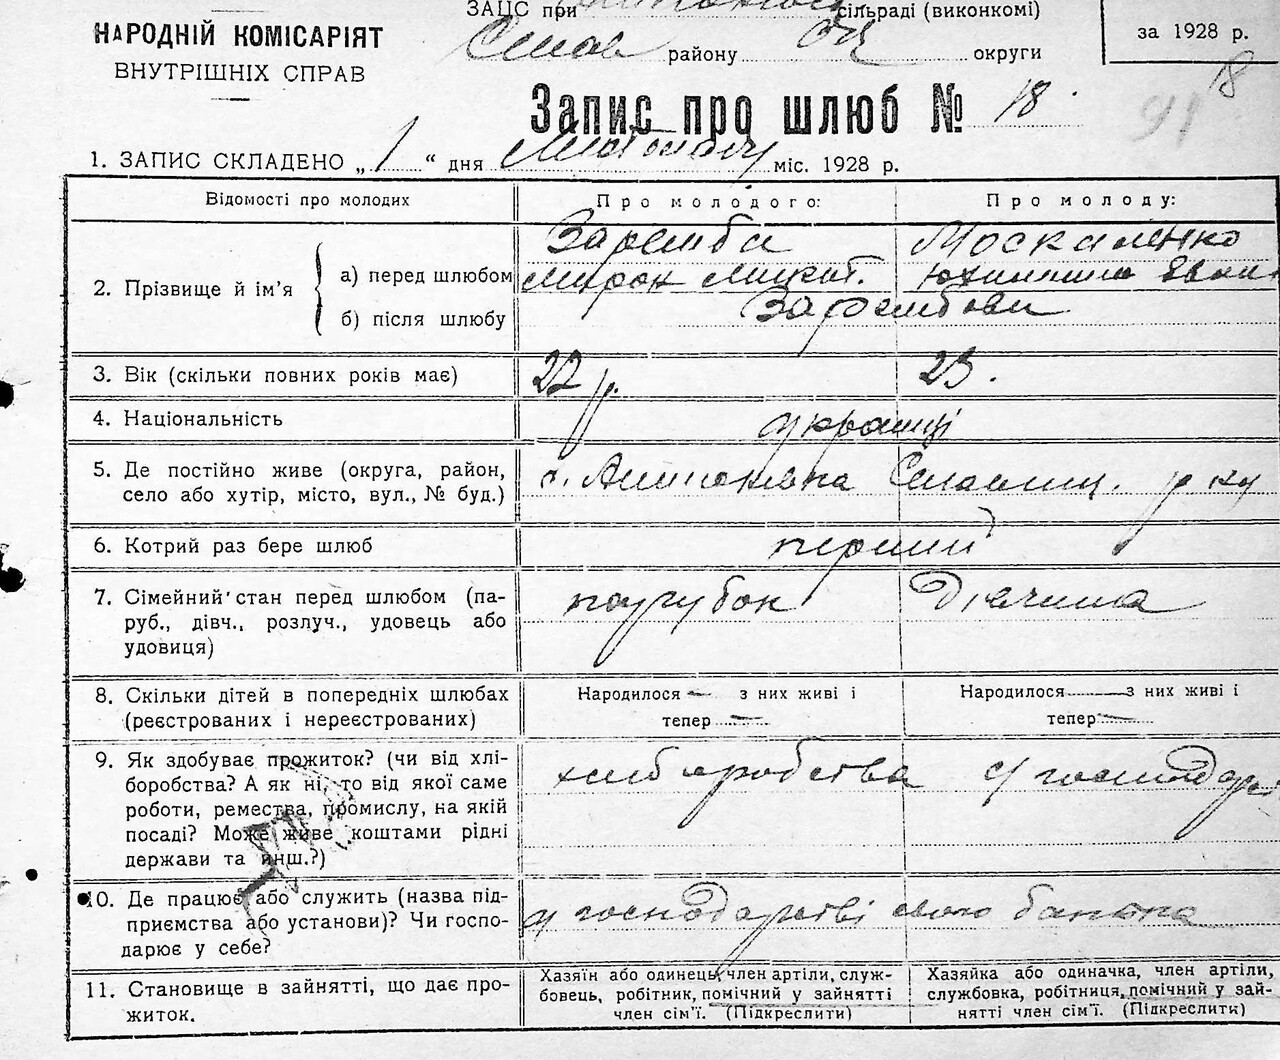 ЗАЦС при сільраді (виконкомі)
НАРОДНІЙ КОМІСАРІЯТ
ВНУТРІШНІХ СПРАВ
району округи
за 1928 р.
18
91
Запис про шлюб № 18.
1. ЗАПИС СКЛАДЕНО „1“ дня листопаду міс. 1928 р.
Відомості про молодих
Про молодого:
Про молоду:
2. Прізвище й ім'я
а) перед шлюбом
Заремба
Мирон Микит.
Москаленко
Юхимина
б) після шлюбу
Зарембови
3. Вік (скільки повних років має)
22 р.
23.
4. Національність
українці
5. Де постійно живе (округа, район,
село або хутір, місто, вул., № буд.)
с. Антонівка р-ну
6. Котрий раз бере шлюб
перший
7. Сімейний стан перед шлюбом (па-
руб., дівч., розлуч., удовець або
удовиця)
парубок
Дівчина
8. Скільки дітей в попередніх шлюбах
(реєстрованих і нереєстрованих)
Народилося — з них живі і
тепер —
Народилося — з них живі і
тепер —
9. Як здобуває прожиток? (чи від хлі-
боробства? А як ні, то від якої саме
роботи, ремества, промислу, на якій
посаді? Може живе коштами рідні
держави та инш.?)
хліборобства с/господар
10. Де працює або служить (назва під-
приємства або установи)? Чи госпо-
дарює у себе?
у господарстві свого батька
11. Становище в зайнятті, що дає про-
житок.
Хазяїн або одинець, член артіли, служ-
бовець, робітник, помічний у зайнятті
член сім'ї. (Підкреслити)
Хазяйка або одиначка, член артіли,
службовка, робітниця, помічний у зай-
нятті член сім'ї. (Підкреслити)